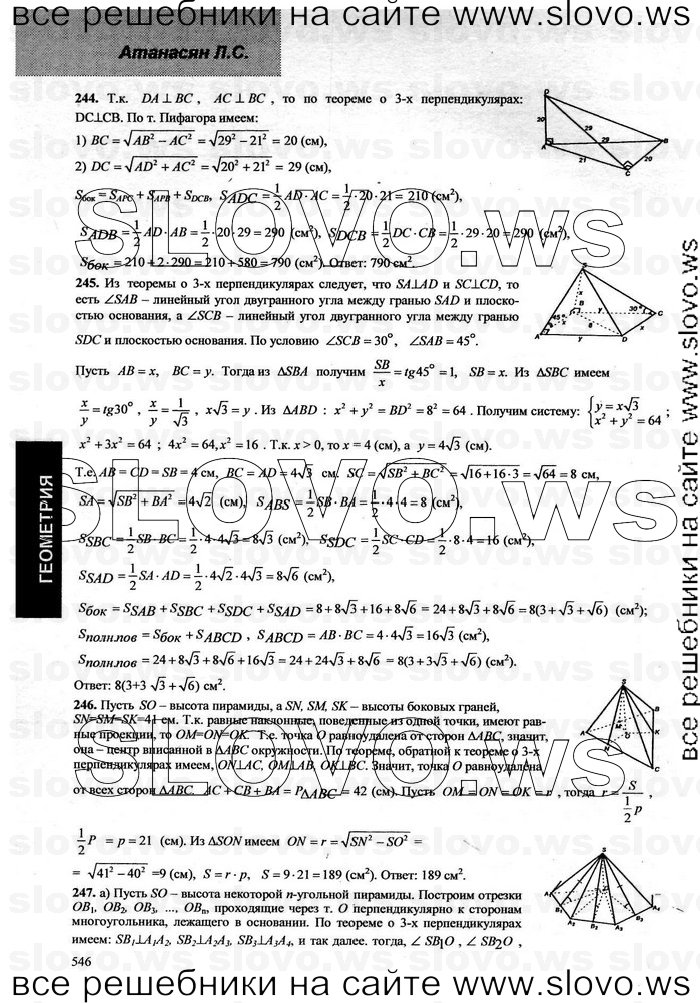 все решебники на сайте www.slovo.ws
Атанасян Л.С.
244. Т.к. DA⊥BC, AC⊥BC, то по теореме о 3-х перпендикулярах:
DC⊥CB. По т. Пифагора имеем:
1) BC = √(AB² − AC²) = √(29² − 21²) = 20 (см),
2) DC = √(AD² + AC²) = √(20² + 21²) = 29 (см),
Sбок = SAPC + SAPB + SDCB, SADC = 1/2 AD·AC = 1/2·20·21 = 210 (см²),
SADB = 1/2 AD·AB = 1/2·20·29 = 290 (см²), SDCB = 1/2 DC·CB = 1/2·29·20 = 290 (см²),
Sбок = 210 + 2·290 = 210 + 580 = 790 (см²). Ответ: 790 см².
245. Из теоремы о 3-х перпендикулярах следует, что SA⊥AD и SC⊥CD, то
есть ∠SAB – линейный угол двугранного угла между гранью SAD и плоско-
стью основания, а ∠SCB – линейный угол двугранного угла между гранью
SDC и плоскостью основания. По условию ∠SCB = 30°, ∠SAB = 45°.
Пусть AB = x, BC = y. Тогда из ΔSBA получим SB/x = tg45° = 1, SB = x. Из ΔSBC имеем
x/y = tg30°, x/y = 1/√3, x√3 = y. Из ΔABD : x² + y² = BD² = 8² = 64. Получим систему: {y = x√3 x² + y² = 64 ;
x² + 3x² = 64 ; 4x² = 64, x² = 16. Т.к. x > 0, то x = 4 (см), а y = 4√3 (см).
Т.е. AB = CD = SB = 4 см, BC = AD = 4√3 см. SC = √(SB² + BC²) = √(16 + 16·3) = √64 = 8 см,
SA = √(SB² + BA²) = 4√2 (см), SABS = 1/2 SB·BA = 1/2·4·4 = 8 (см²),
SSBC = 1/2 SB·BC = 1/2·4·4√3 = 8√3 (см²), SSDC = 1/2 SC·CD = 1/2·8·4 = 16 (см²),
SSAD = 1/2 SA·AD = 1/2·4√2·4√3 = 8√6 (см²),
Sбок = SSAB + SSBC + SSDC + SSAD = 8 + 8√3 + 16 + 8√6 = 24 + 8√3 + 8√6 = 8(3 + √3 + √6) (см²);
Sполн.пов = Sбок + SABCD, SABCD = AB·BC = 4·4√3 = 16√3 (см²),
Sполн.пов = 24 + 8√3 + 8√6 + 16√3 = 24 + 24√3 + 8√6 = 8(3 + 3√3 + √6) (см²).
Ответ: 8(3+3√3+√6) см².
246. Пусть SO – высота пирамиды, а SN, SM, SK – высоты боковых граней,
SN=SM=SK=41 см. Т.к. равные наклонные, поведенные из одной точки, имеют рав-
ные проекции, то OM=ON=OK. Т.е. точка O равноудалена от сторон ΔABC, значит,
она – центр вписанной в ΔABC окружности. По теореме, обратной к теореме о 3-х
перпендикулярах имеем, ON⊥AC, OM⊥AB, OK⊥BC. Значит, точка O равноудалена
от всех сторон ΔABC. AC + CB + BA = PΔABC = 42 (см). Пусть OM = ON = OK = r, тогда r = S/(1/2 p),
1/2 P = p = 21 (см). Из ΔSON имеем ON = r = √(SN² − SO²) =
= √(41² − 40²) = 9 (см), S = r·p, S = 9·21 = 189 (см²). Ответ: 189 см².
247. а) Пусть SO – высота некоторой n-угольной пирамиды. Построим отрезки
OB₁, OB₂, OB₃, ..., OBₙ, проходящие через т. O перпендикулярно к сторонам
многоугольника, лежащего в основании. По теореме о 3-х перпендикулярах
имеем: SB₁⊥A₁A₂, SB₂⊥A₂A₃, SB₃⊥A₃A₄, и так далее. тогда, ∠SB₁O, ∠SB₂O,
546
ГЕОМЕТРИЯ
SLOVO.ws
SLOVO.ws
SLOVO.ws
все решебники на сайте www.slovo.ws
все решебники на сайте www.slovo.ws